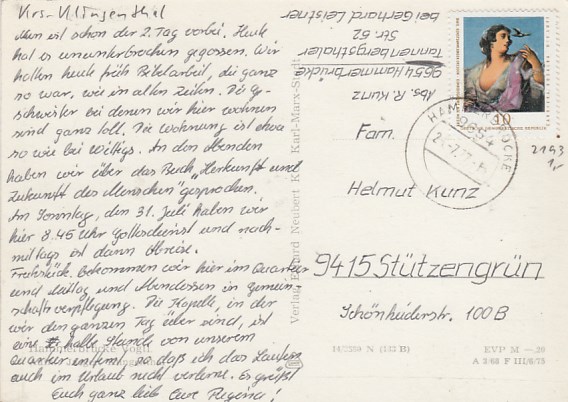 Krs. Klingenthal
Nun ist schon der 2. Tag vorbei. Heute
hat es ununterbrochen gegossen. Wir
hatten heute früh Bibelarbeit, die ganz
so war, wie in alten Zeiten. Die Ge-
schwister bei denen wir hier wohnen
sind ganz toll. Die Wohnung ist etwa
so wie bei Wittigs. An den Abenden
haben wir über das Buch „Herkunft und
Zukunft des Menschen" gesprochen.
Am Sonntag, den 31. Juli haben wir
hier 8.45 Uhr Gottesdienst und nach-
mittags ist dann Abreise.
Frühstück bekommen wir hier im Quartier
und Mittag und Abendessen in Gemein-
schaftsverpflegung. Die Kapelle, in der
wir den ganzen Tag über sind, ist
eine halbe Stunde von unserem
Quartier entfernt, so daß ich das Laufen
auch im Urlaub nicht verlerne. Es grüßt
Euch ganz lieb Eure Regina!
Hammerbrücke Vogtl.
Verlag Erhard Neubert KG, Karl-Marx-Stadt
Abs. R. Kunz
9654 Hammerbrücke
Tannenbergsthaler
Str. 62
bei Gerhard Leistner
10
HAMMERBRÜCKE
9654
2193
1,-
Fam.
Helmut Kunz
9415 Stützengrün
Schönheiderstr. 100B
EVP M —.20
A 3/68 F III/6/75